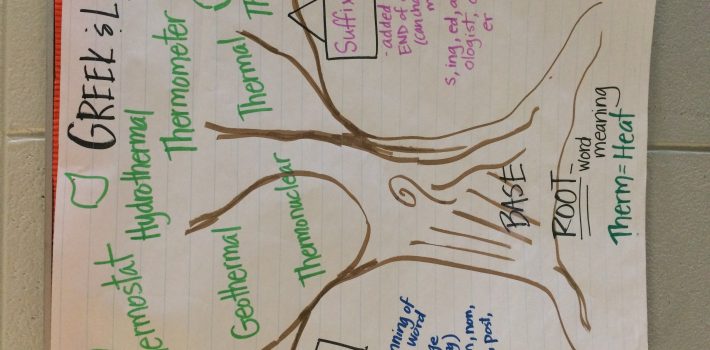 GREEK & L
Thermostat
Hydrothermal
Thermometer
Thermal
Geothermal
Thermonuclear
Suffix
- added
END of
s, ing, ed,
ologist,
er
BASE
ROOT
word
meaning
Therm = Heat
word
non,
post,